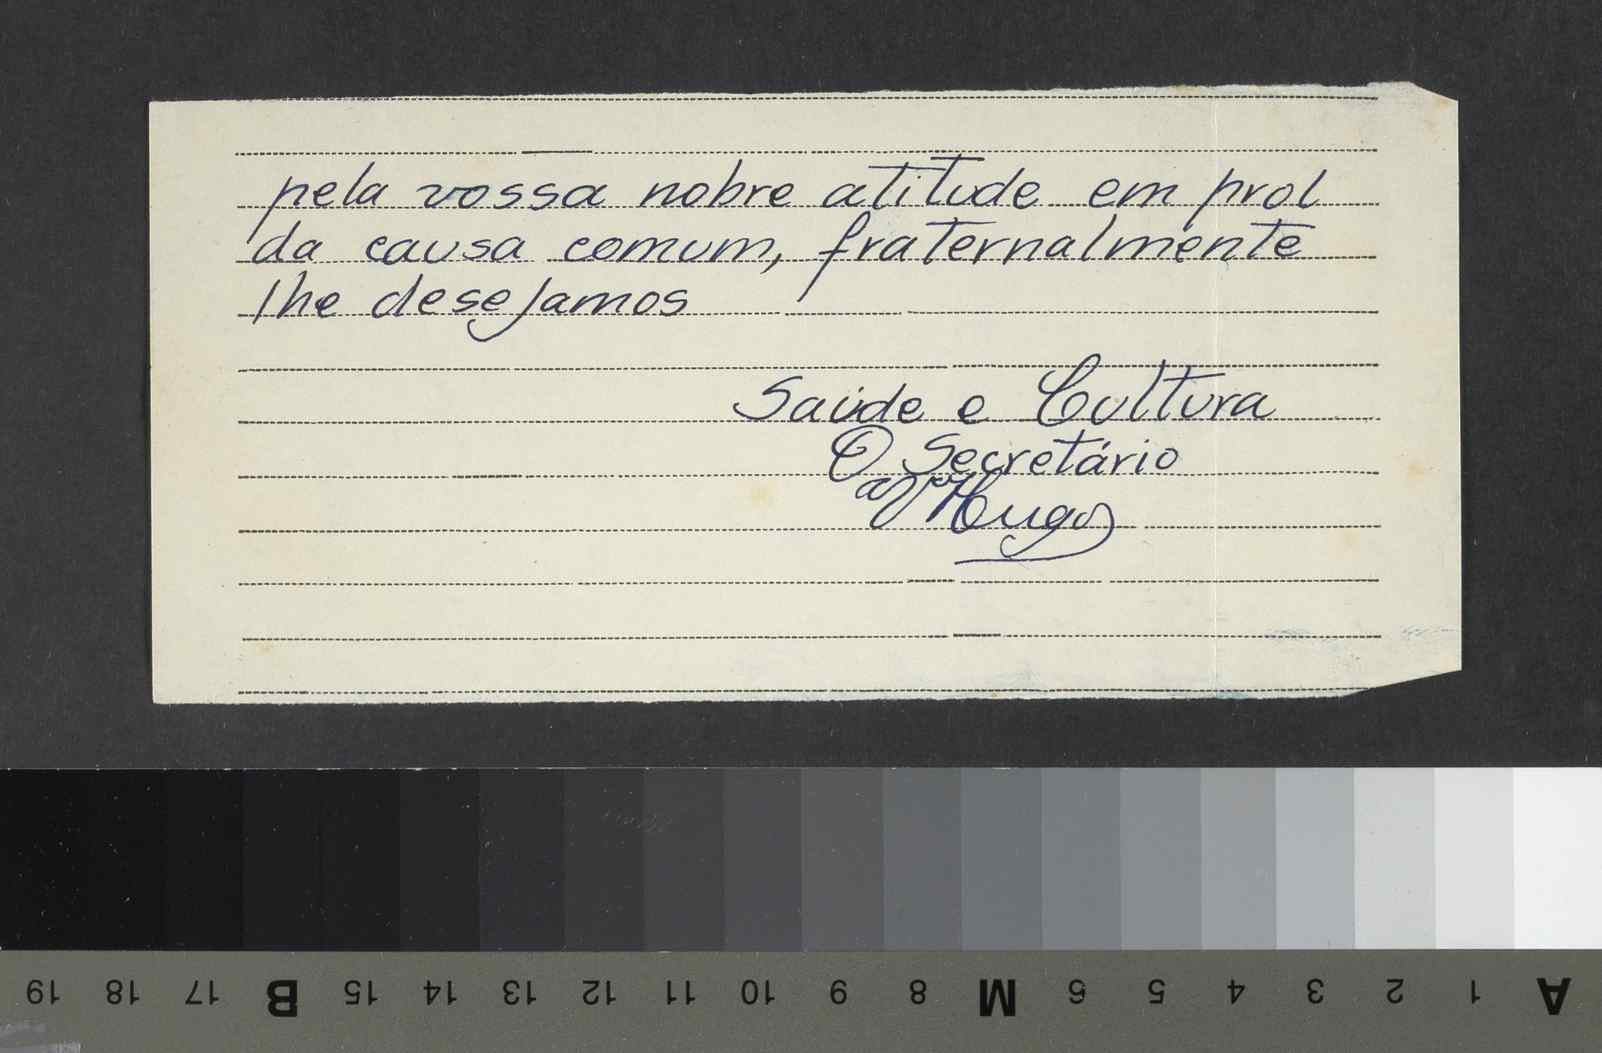 pela vossa nobre atitude em prol
da causa comum, fraternalmente
lhe desejamos
Saúde e Cultura
O Secretário
Hugo
19 18 17 B 15 14 13 12 11 10 9 8 M 6 5 4 3 2 1 A